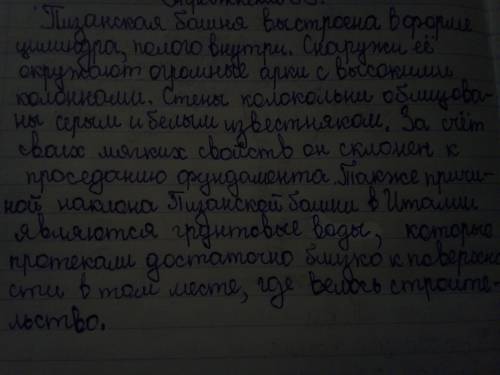 Пизанская башня выстроена в форме
цилиндра, полого внутри. Снаружи её
окружают огромные арки с высокими
колоннами. Стены колокольни облицова-
ны серым и белым известняком. За счёт
своих мягких свойств он склонен к
проседанию фундамента. Также причи-
ной наклона Пизанской башни в Италии
являются грунтовые воды, которые
протекали достаточно близко к поверхно
сти в том месте, где велось строите-
льство.